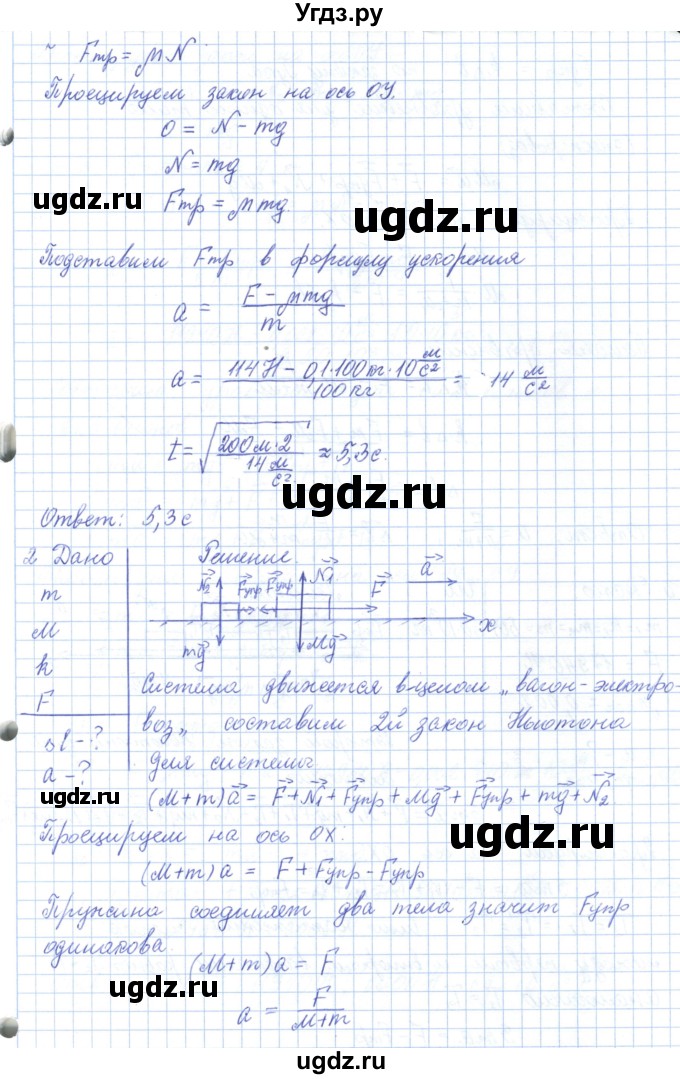 Угдз.ру
Fтр = μN
Проецируем закон на ось OY.
0 = N - mg
N = mg
ugdz.ru
Fтр = μmg.
ugdz.ru
Подставим Fтр в формулу ускорения
a = (F - μmg)/m
a = (114Н - 0,1·100кг·10 м/с²)/100кг = 14 м/с²
t = √(200м·2/14 м/с²) ≈ 5,3с.
ugdz.ru
Ответ: 5,3с
2 Дано
Решение.
m
M
k
F
Δl - ?
a - ?
N⃗2 F⃗упр F⃗упр N⃗1 F⃗ a⃗
x
mg⃗ Mg⃗
Система движется в целом „вагон-электро-
воз„ составим 2й закон Ньютона
для системы
ugdz.ru
(M+m)a⃗ = F⃗ + N⃗1 + F⃗упр + Mg⃗ + F⃗упр + mg⃗ + N⃗2
Проецируем на ось OX:
ugdz.ru
(M+m)a = F + Fупр - Fупр
Пружина соединяет два тела значит Fупр
одинакова.
(M+m)a = F
ugdz.ru
a = F/(M+m)
ugdz.ru